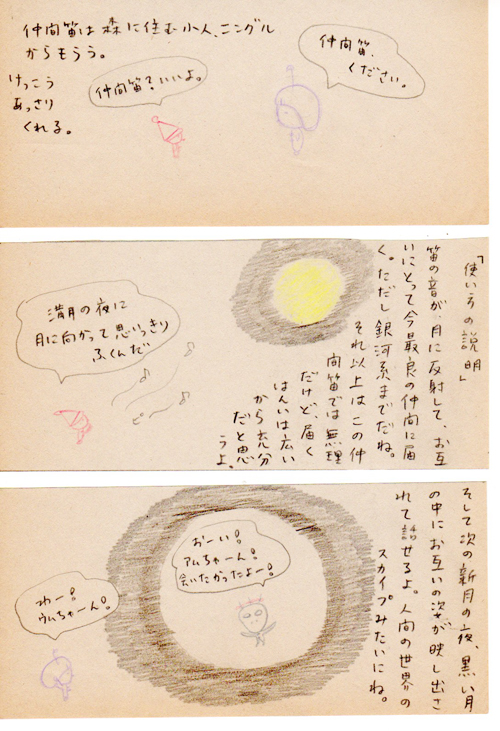 仲間笛は森に住む小人、ニングル
からもらう。
けっこう
あっさり
くれる。
仲間笛？いいよ。
仲間笛、
ください。
「使い方の説明」
笛の音が、月に反射して、お互
いにとって今最良の仲間に届
く。ただし銀河系までだね。
それ以上はこの仲
間笛では無理
だけど、届く
はんいは広い
から充分
だと思
うよ。
満月の夜に
月に向かって思いっきり
ふくんだ
ピー
そして次の新月の夜、黒い月
の中にお互いの姿が映し出さ
れて話せるよ。人間の世界の
スカイプみたいにね。
おーい！
アムちゃーん！
会いたかったよー！
わー！
ウムちゃーん！